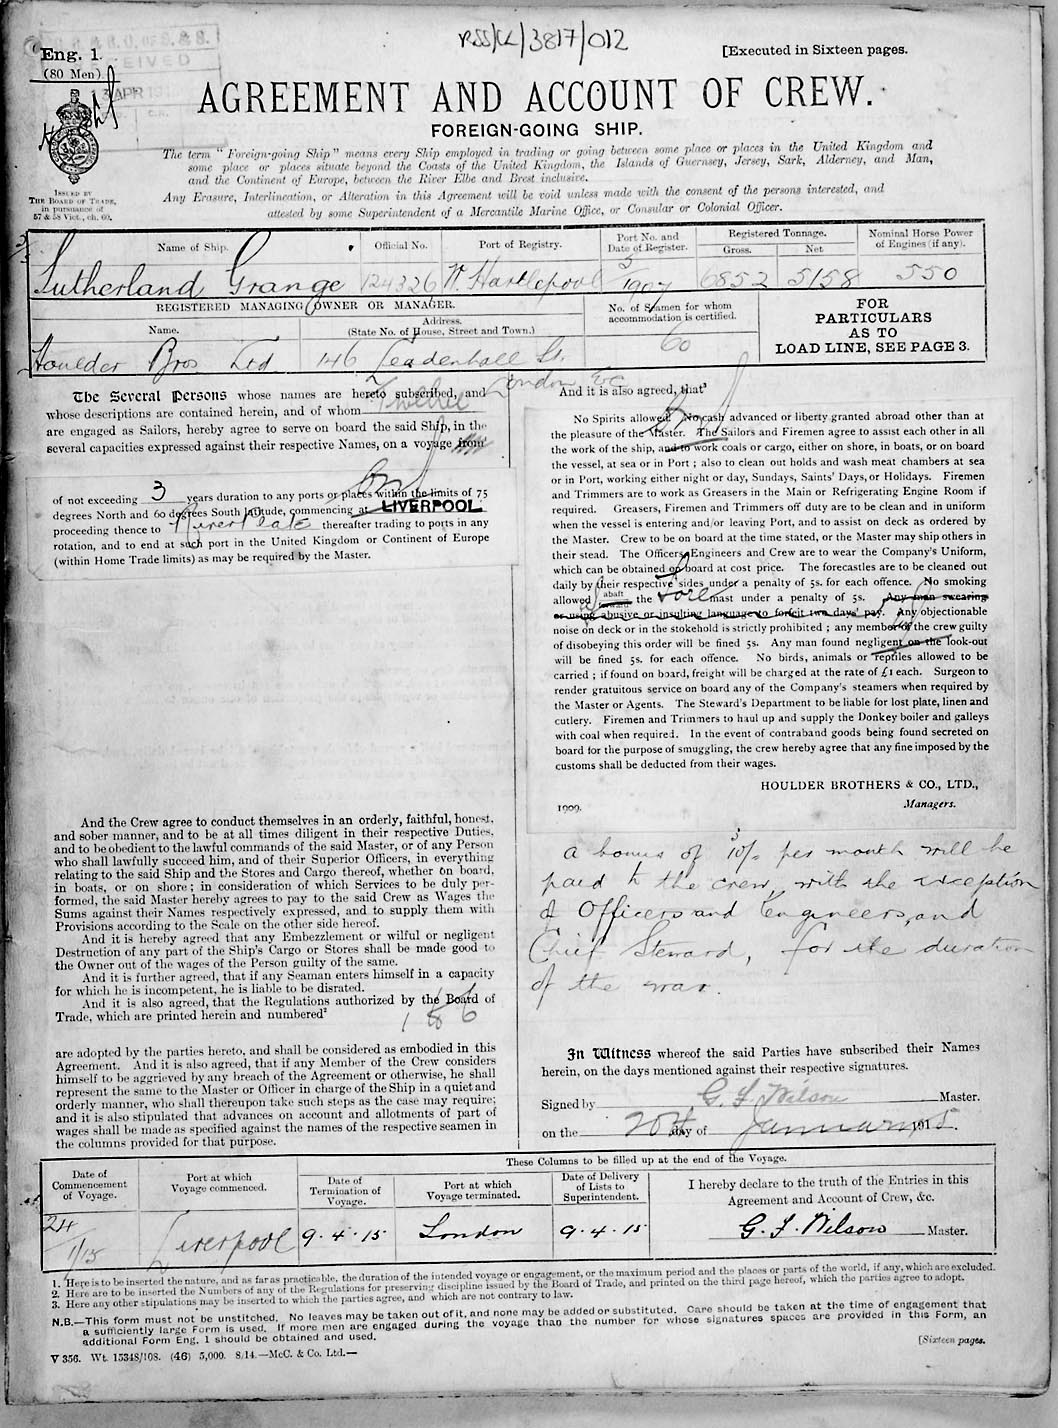 RSS/CL/3817/012
Eng. 1.
(80 Men)
[Executed in Sixteen pages.
RECEIVED
13 APR 191
AGREEMENT AND ACCOUNT OF CREW.
FOREIGN-GOING SHIP.
The term "Foreign-going Ship" means every Ship employed in trading or going between some place or places in the United Kingdom and
some place or places situate beyond the Coasts of the United Kingdom, the Islands of Guernsey, Jersey, Sark, Alderney, and Man,
and the Continent of Europe, between the River Elbe and Brest inclusive.
Any Erasure, Interlineation, or Alteration in this Agreement will be void unless made with the consent of the persons interested, and
attested by some Superintendent of a Mercantile Marine Office, or Consular or Colonial Officer.
ISSUED BY
THE BOARD OF TRADE,
in pursuance of
57 & 58 Vict., ch. 60.
Name of Ship.
Official No.
Port of Registry.
Port No. and
Date of Register.
Registered Tonnage.
Gross.
Net
Nominal Horse Power
of Engines (if any).
Sutherland Grange 124326 W. Hartlepool 5/1907 6852 5158 550
REGISTERED MANAGING OWNER OR MANAGER.
Name.
Address.
(State No. of House, Street and Town.)
No. of Seamen for whom
accommodation is certified.
FOR
PARTICULARS
AS TO
LOAD LINE, SEE PAGE 3.
Houlder Bros Ltd 146 Leadenhall St. 60
London EC
The Several Persons whose names are hereto subscribed, and
whose descriptions are contained herein, and of whom Twelve
are engaged as Sailors, hereby agree to serve on board the said Ship, in the
several capacities expressed against their respective Names, on a voyage from¹
of not exceeding 3 years duration to any ports or places within the limits of 75
degrees North and 60 degrees South latitude, commencing at LIVERPOOL
proceeding thence to River Plate thereafter trading to ports in any
rotation, and to end at such port in the United Kingdom or Continent of Europe
(within Home Trade limits) as may be required by the Master.
And the Crew agree to conduct themselves in an orderly, faithful, honest,
and sober manner, and to be at all times diligent in their respective Duties,
and to be obedient to the lawful commands of the said Master, or of any Person
who shall lawfully succeed him, and of their Superior Officers, in everything
relating to the said Ship and the Stores and Cargo thereof, whether on board,
in boats, or on shore; in consideration of which Services to be duly per-
formed, the said Master hereby agrees to pay to the said Crew as Wages the
Sums against their Names respectively expressed, and to supply them with
Provisions according to the Scale on the other side hereof.
And it is hereby agreed that any Embezzlement or wilful or negligent
Destruction of any part of the Ship's Cargo or Stores shall be made good to
the Owner out of the wages of the Person guilty of the same.
And it is further agreed, that if any Seaman enters himself in a capacity
for which he is incompetent, he is liable to be disrated.
And it is also agreed, that the Regulations authorized by the Board of
Trade, which are printed herein and numbered²
1 & 6
are adopted by the parties hereto, and shall be considered as embodied in this
Agreement. And it is also agreed, that if any Member of the Crew considers
himself to be aggrieved by any breach of the Agreement or otherwise, he shall
represent the same to the Master or Officer in charge of the Ship in a quiet and
orderly manner, who shall thereupon take such steps as the case may require;
and it is also stipulated that advances on account and allotments of part of
wages shall be made as specified against the names of the respective seamen in
the columns provided for that purpose.
And it is also agreed, that³
No Spirits allowed. No cash advanced or liberty granted abroad other than at
the pleasure of the Master. The Sailors and Firemen agree to assist each other in all
the work of the ship, and to work coals or cargo, either on shore, in boats, or on board
the vessel, at sea or in Port; also to clean out holds and wash meat chambers at sea
or in Port, working either night or day, Sundays, Saints' Days, or Holidays. Firemen
and Trimmers are to work as Greasers in the Main or Refrigerating Engine Room if
required. Greasers, Firemen and Trimmers off duty are to be clean and in uniform
when the vessel is entering and/or leaving Port, and to assist on deck as ordered by
the Master. Crew to be on board at the time stated, or the Master may ship others in
their stead. The Officers, Engineers and Crew are to wear the Company's Uniform,
which can be obtained on board at cost price. The forecastles are to be cleaned out
daily by their respective sides under a penalty of 5s. for each offence. No smoking
allowed abaft forward the Foremast under a penalty of 5s. Any man swearing
or using abusive or insulting language to forfeit two days' pay. Any objectionable
noise on deck or in the stokehold is strictly prohibited; any member of the crew guilty
of disobeying this order will be fined 5s. Any man found negligent on the look-out
will be fined 5s. for each offence. No birds, animals or reptiles allowed to be
carried; if found on board, freight will be charged at the rate of £1 each. Surgeon to
render gratuitous service on board any of the Company's steamers when required by
the Master or Agents. The Steward's Department to be liable for lost plate, linen and
cutlery. Firemen and Trimmers to haul up and supply the Donkey boiler and galleys
with coal when required. In the event of contraband goods being found secreted on
board for the purpose of smuggling, the crew hereby agree that any fine imposed by the
customs shall be deducted from their wages.
HOULDER BROTHERS & CO., LTD.,
1909. Managers.
a bonus of 10/- per month will be
paid to the crew, with the exception
of Officers and Engineers, and
Chief Steward, for the duration
of the war.
In Witness whereof the said Parties have subscribed their Names
herein, on the days mentioned against their respective signatures.
Signed by G. F. Wilson Master.
on the 20th day of January 1915.
These Columns to be filled up at the end of the Voyage.
Date of
Commencement
of Voyage.
Port at which
Voyage commenced.
Date of
Termination of
Voyage.
Port at which
Voyage terminated.
Date of Delivery
of Lists to
Superintendent.
I hereby declare to the truth of the Entries in this
Agreement and Account of Crew, &c.
24/1/15 Liverpool 9.4.15 London 9.4.15 G. F. Wilson Master.
1. Here is to be inserted the nature, and as far as practicable, the duration of the intended voyage or engagement, or the maximum period and the places or parts of the world, if any, which are excluded.
2. Here are to be inserted the Numbers of any of the Regulations for preserving discipline issued by the Board of Trade, and printed on the third page hereof, which the parties agree to adopt.
3. Here any other stipulations may be inserted to which the parties agree, and which are not contrary to law.
N.B.—This form must not be unstitched. No leaves may be taken out of it, and none may be added or substituted. Care should be taken at the time of engagement that
a sufficiently large Form is used. If more men are engaged during the voyage than the number for whose signatures spaces are provided in this Form, an
additional Form Eng. 1 should be obtained and used.
[Sixteen pages.
V 356. Wt. 15348/108. (46) 5,000. 8/14.—McC. & Co. Ltd.—